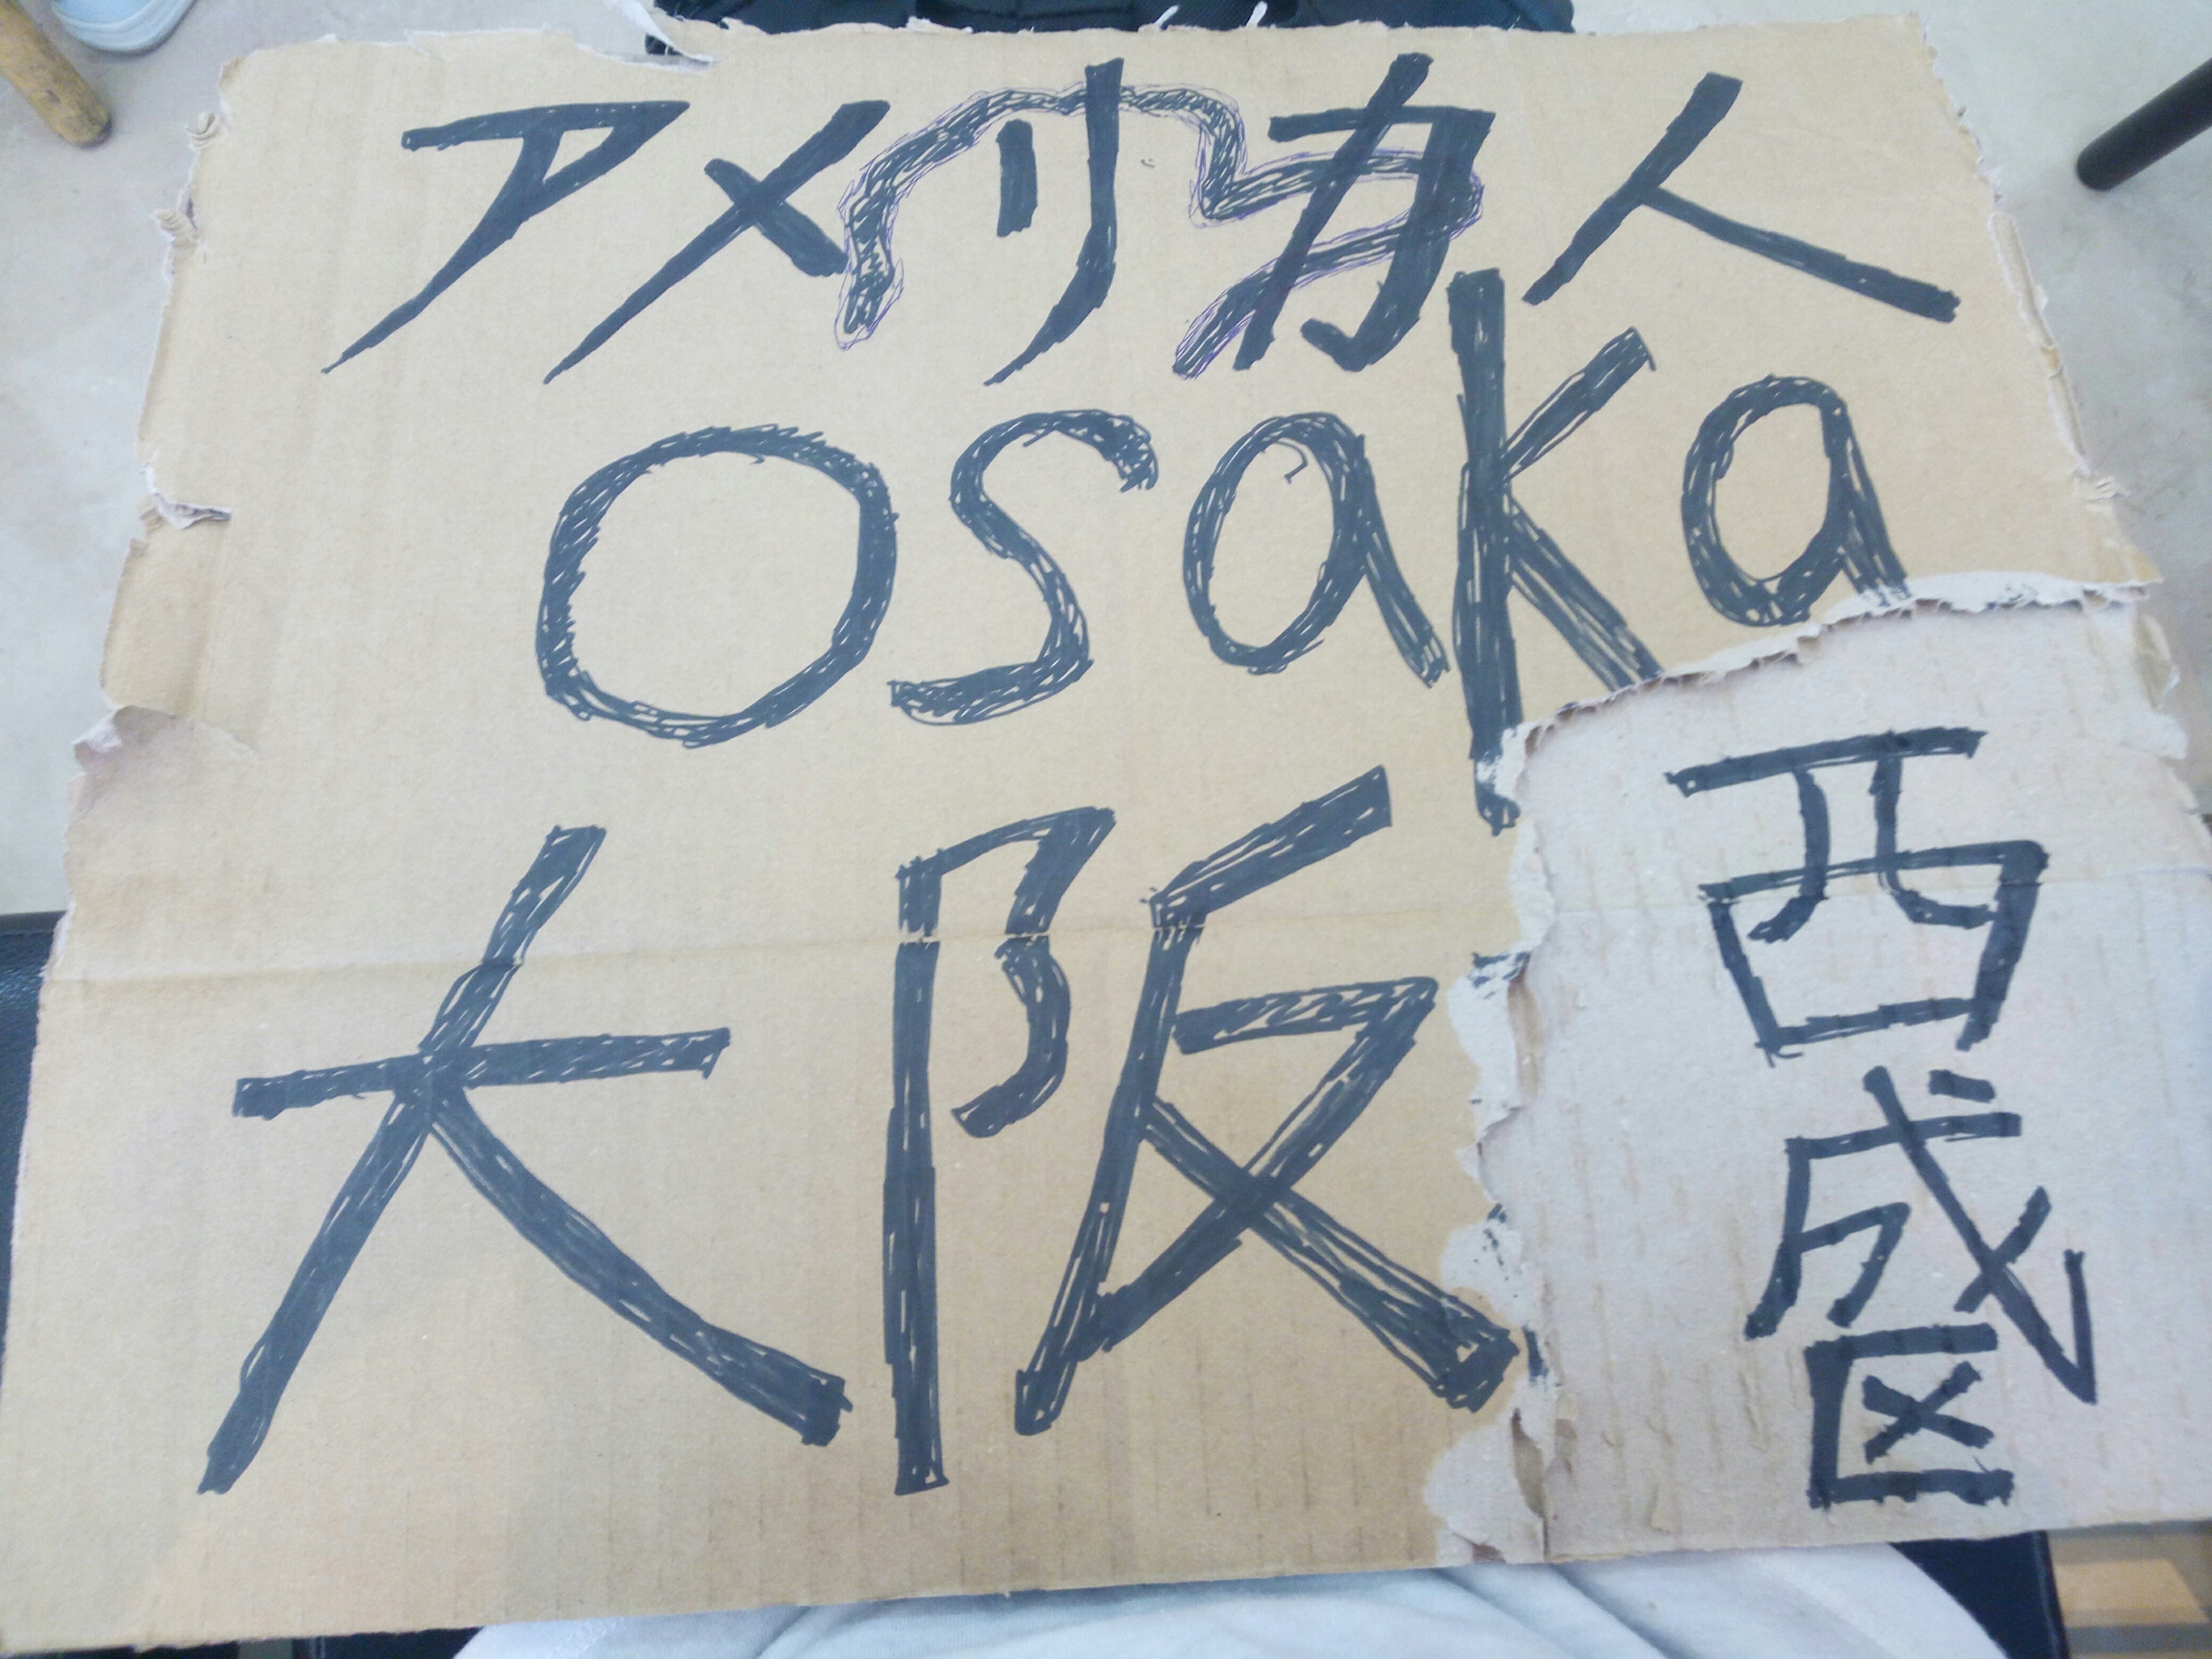 アメリカ人
osaka
大阪
西成区